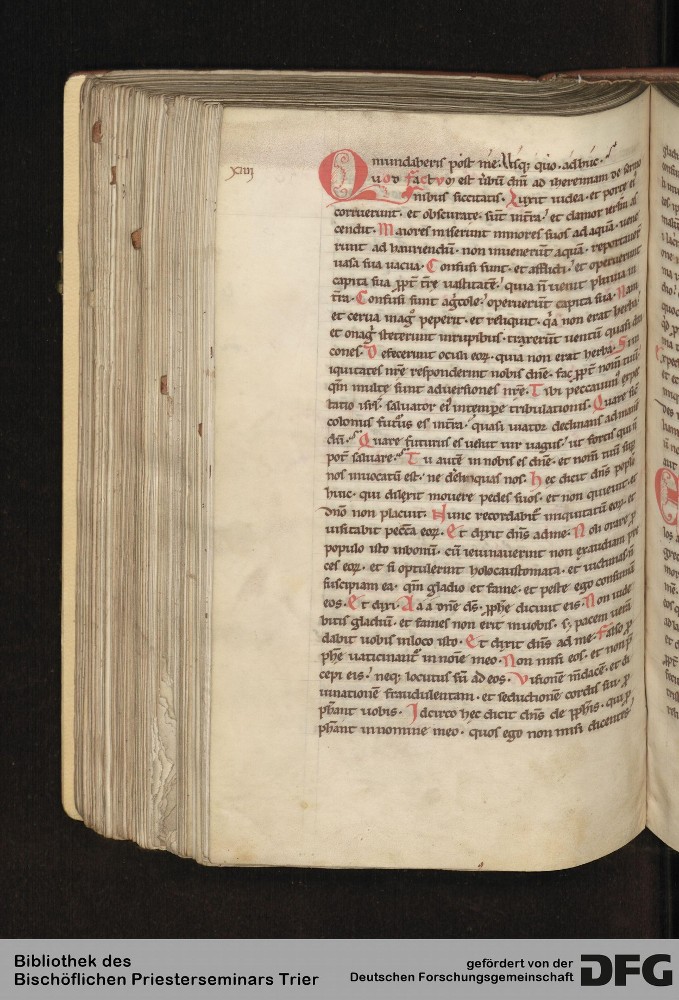 XIIII
mundaberis post me. Usq; quo. adhuc.
Quod factum est verbum dni ad iheremiam de sermo
nibus siccitatis. Luxit iudea. et porte ei9
corruerunt. et obscurate st in tra. et clamor ierlm as
cendit. Maiores miserunt minores suos ad aqua. vene
runt ad hauriendu. non invenerut aqua. reportaverut
vasa sua vacua. Confusi sunt. et afflicti. et operuerunt
capita sua ppt tre vastitate. quia n venit pluvia in
tra. Confusi sunt agcole. operuerunt capita sua. Nam
et cerva in agro peperit. et reliquit. qa non erat herba.
et onagri steterunt in rupibus. traxerut ventu quasi dra
cones. Defecerunt oculi eor. quia non erat herba. Si in
iquitates nre responderint nobis dne. fac ppt nom tuu.
qm multe sunt adversiones nre. Tibi peccavim9 expec
tatio isrl. salvator ei9 in tempe tribulationis. Quare sic
colonus futurus es in tra. quasi viator declinans ad manen
du. Quare futurus es velut vir vagus. ut fortis qui n
pot salvare. Tu aute in nobis es dne. et nom tuu sup
nos invocatu est. ne derelinquas nos. Hec dicit dns poplo
huic. qui dilexit movere pedes suos. et non quievit. et
dno non placuit. Nunc recordabit iniquitatu eor. et
visitabit pecca eor. Et dixit dns ad me. Noli orare p
populo isto in bonu. cu ieiunaverint non exaudiam pre
ces eor. et si optulerint holocaustomata. et victimas. n
suscipiam ea. qm gladio et fame. et peste ego consumam
eos. Et dixi. A a a dne ds. pphe dicunt eis. Non vide
bitis gladiu. et fames non erit in vobis. s; pacem veram
dabit vobis in loco isto. Et dixit dns ad me. Falso p
phe vaticinant in noie meo. Non misi eos. et non p
cepi eis. neq; locutus su ad eos. Visione mdace. et di
vinatione fraudulentam. et seductione cordis sui. p
phant vobis. Idcirco hec dicit dns de pphis. qui p
phant in nomine meo. quos ego non misi dicentes.
Bibliothek des
Bischöflichen Priesterseminars Trier
gefördert von der
Deutschen Forschungsgemeinschaft
DFG